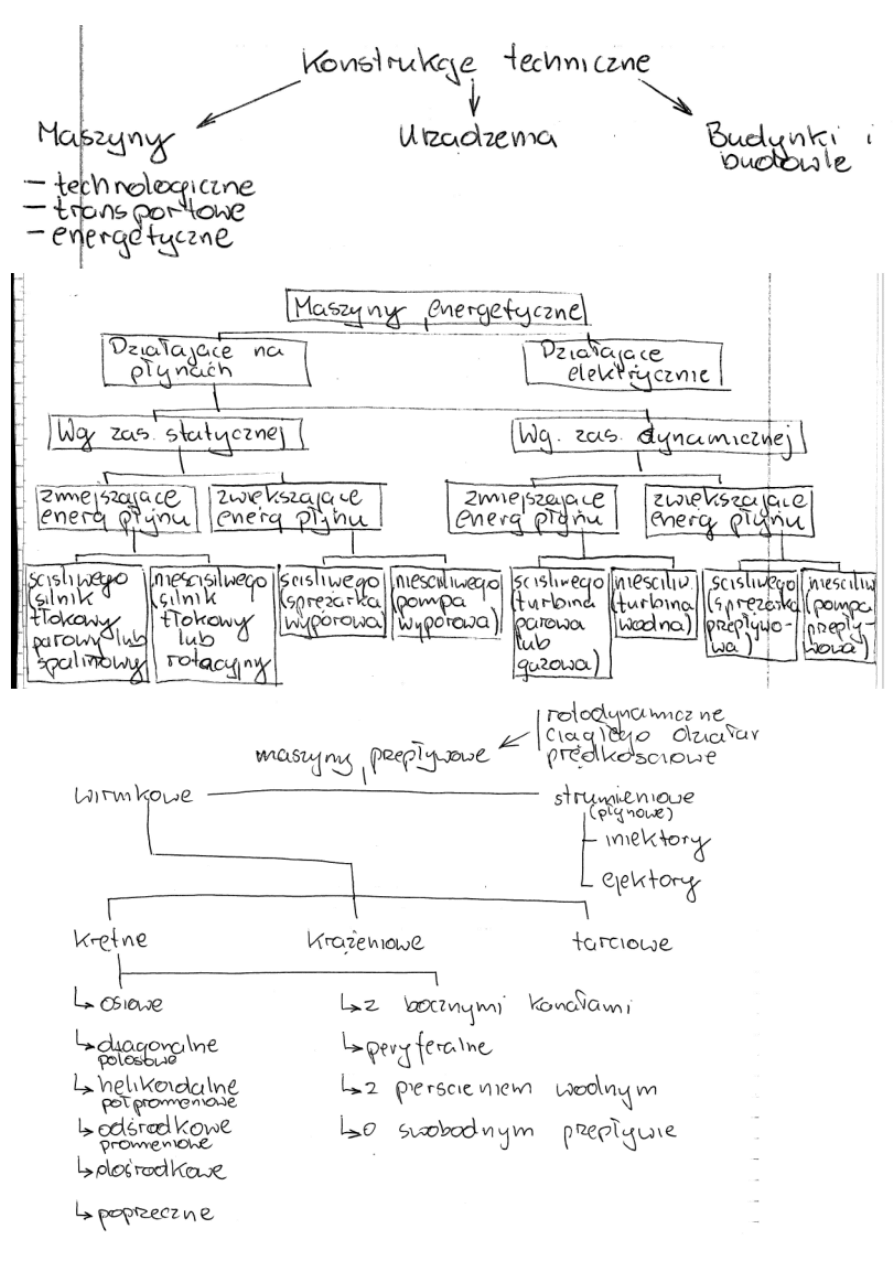 Konstrukcje techniczne
Maszyny
Urządzenia
Budynki i
budowle
- technologiczne
- transportowe
- energetyczne
Maszyny energetyczne
Działające na
płynach
Działające
elektrycznie
Wg zas. statycznej
Wg. zas. dynamicznej
zmiejszające
energ płynu
zwiększające
energ płynu
zmiejszające
energ płynu
zwiększające
energ płynu
ścisliwego
(silnik
tłokowy
parowy lub
spalinowy
nieścisilwego
(silnik
tłokowy
lub
rotacyjny
ścisliwego
(sprężarka
wyporowa)
nieścisliwego
(pompa
wyporowa)
ścisliwego
(turbina
parowa
lub
gazowa)
nieściliw
(turbina
wodna)
ścisliwego
(sprężarka
przepływo-
wa)
nieściliw
(pompa
przepły-
wowa)
rotodynamiczne
ciągłego działan
prędkościowe
maszyny przepływowe
wirnikowe
strumieniowe
(płynowe)
- iniektory
- ejektory
krętne
krążeniowe
tarciowe
↳ osiowe
↳ diagonalne
półosiowe
↳ helikoidalne
półpromieniowe
↳ odśrodkowe
promieniowe
↳ dośrodkowe
↳ poprzeczne
↳ z bocznymi kanałami
↳ peryferalne
↳ z pierscieniem wodnym
↳ o swobodnym przepływie